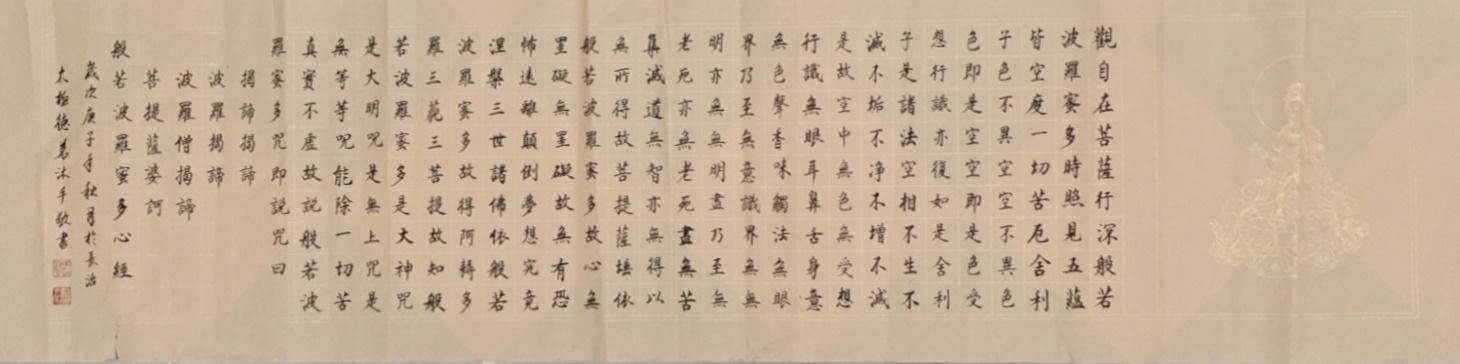 觀自在菩薩行深般若
波羅蜜多時照見五蘊
皆空度一切苦厄舍利
子色不異空空不異色
色即是空空即是色受
想行識亦復如是舍利
子是諸法空相不生不
滅不垢不净不增不減
是故空中無色無受想
行識無眼耳鼻舌身意
無色聲香味觸法無眼
界乃至無意識界無無
明亦無無明盡乃至無
老死亦無老死盡無苦
集滅道無智亦無得以
無所得故菩提薩埵依
般若波羅蜜多故心無
罣礙無罣礙故無有恐
怖遠離顛倒夢想究竟
涅槃三世諸佛依般若
波羅蜜多故得阿耨多
羅三藐三菩提故知般
若波羅蜜多是大神咒
是大明咒是無上咒是
無等等咒能除一切苦
真實不虛故説般若波
羅蜜多咒即説咒曰
揭諦揭諦
波羅揭諦
波羅僧揭諦
菩提薩婆訶
般若波羅蜜多心經
歲次庚子年秋月於長治
太極德沐手敬書